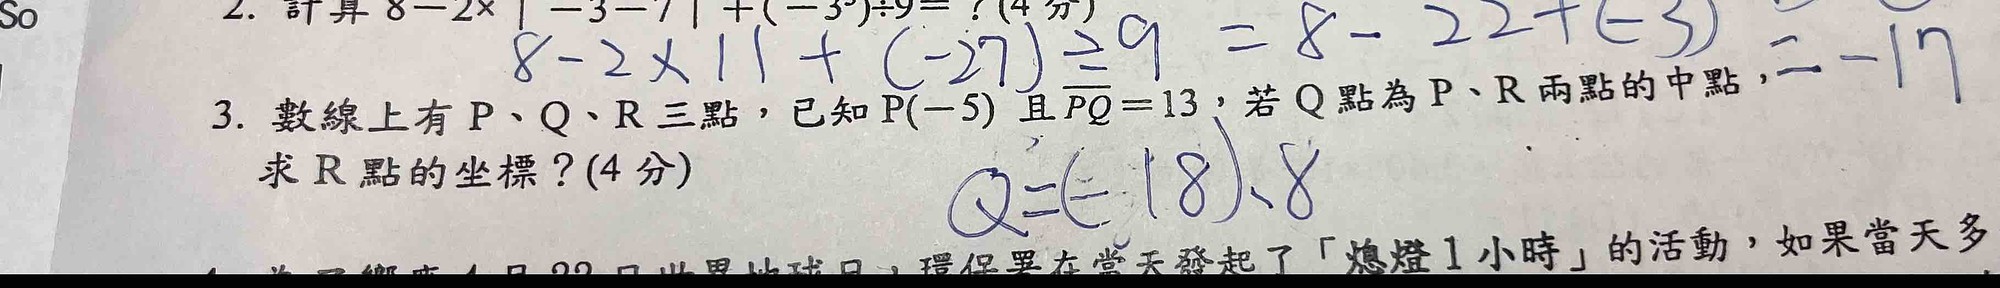 So
2. 計算 8－2×|－3－7|＋(－3³)÷9＝？(4 分)
8－2×11＋(－27)÷9＝8－22＋(－3)
＝－17
3. 數線上有 P、Q、R 三點，已知 P(－5) 且 PQ＝13，若 Q 點為 P、R 兩點的中點，
求 R 點的坐標？(4 分)
Q＝(－18)、8
環保署在當天發起了「熄燈 1 小時」的活動，如果當天多